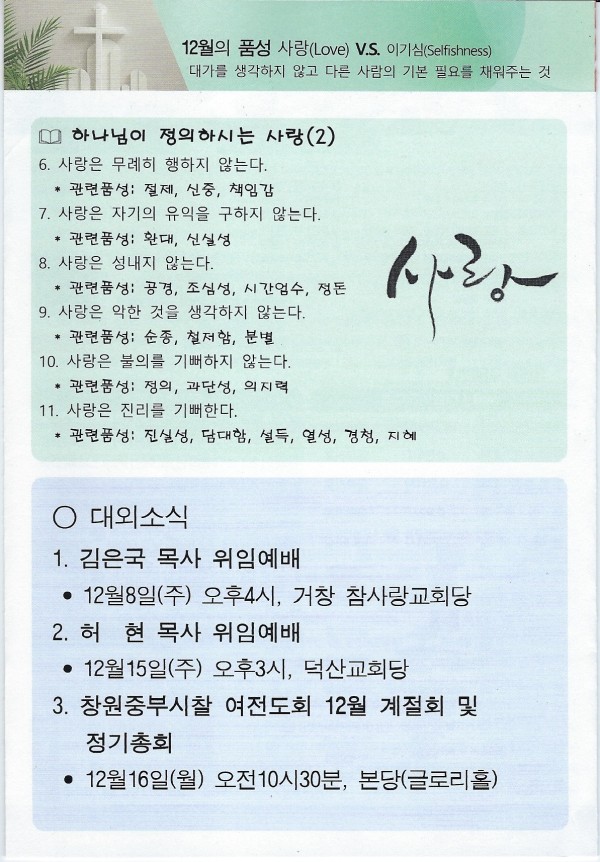 12월의 품성 사랑(Love) V.S. 이기심(Selfishness)
대가를 생각하지 않고 다른 사람의 기본 필요를 채워주는 것
하나님이 정의하시는 사랑(2)
6. 사랑은 무례히 행하지 않는다.
* 관련품성: 절제, 신중, 책임감
7. 사랑은 자기의 유익을 구하지 않는다.
* 관련품성: 환대, 신실성
8. 사랑은 성내지 않는다.
* 관련품성: 공경, 조심성, 시간엄수, 정돈
9. 사랑은 악한 것을 생각하지 않는다.
* 관련품성: 순종, 철저함, 분별
10. 사랑은 불의를 기뻐하지 않는다.
* 관련품성: 정의, 과단성, 의지력
11. 사랑은 진리를 기뻐한다.
* 관련품성: 진실성, 담대함, 설득, 열성, 경청, 지혜
사랑
○ 대외소식
1. 김은국 목사 위임예배
• 12월8일(주) 오후4시, 거창 참사랑교회당
2. 허 현 목사 위임예배
• 12월15일(주) 오후3시, 덕산교회당
3. 창원중부시찰 여전도회 12월 계절회 및
정기총회
• 12월16일(월) 오전10시30분, 본당(글로리홀)